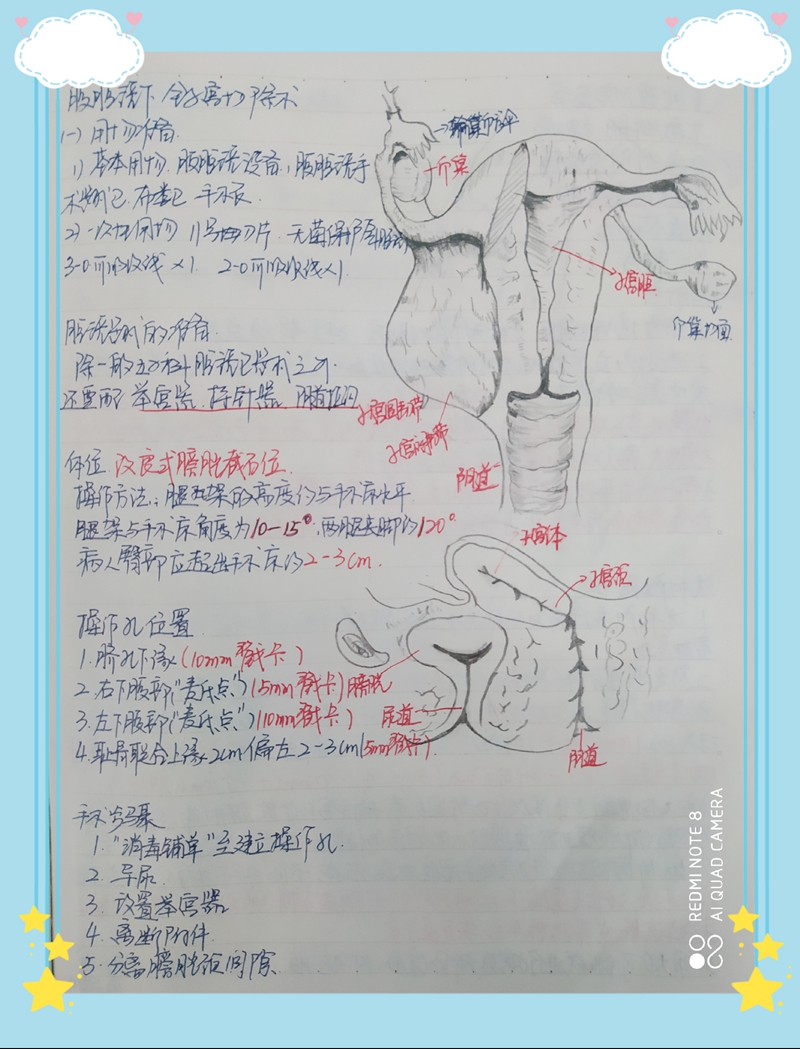 腹腔镜下全子宫切除术
(一) 用物准备
1) 基本用物 腹腔镜设备,腹腔镜手
术器械包 布类包 手术衣
2) 一次性用物 11号刀片 无菌保护套
3-0可吸收线×1 2-0可吸收线×1
腔镜器械的准备
除一般妇科腔镜包器械之外
还要配 举宫器、持针器、阴道拉钩
体位 改良式膀胱截石位
操作方法:腿架的高度约与手术床水平
腿架与手术床角度为10-15°,两腿夹脚约120°
病人臀部应超出手术床约2-3cm.
操作孔位置
1. 脐孔下缘(10mm戳卡)
2. 右下腹部"麦氏点"(5mm戳卡)
3. 左下腹部"麦氏点"(10mm戳卡)
4. 耻骨联合上缘2cm偏左2-3cm(5mm戳卡)
手术步骤
1. "消毒铺单"至建立操作孔.
2. 导尿
3. 放置举宫器
4. 离断附件
5. 分离膀胱间隙
输卵管伞
卵巢
子宫腔
卵巢切面
子宫圆韧带
子宫阔韧带
阴道
子宫体
子宫颈
膀胱
尿道
阴道
REDMI NOTE 8
AI QUAD CAMERA